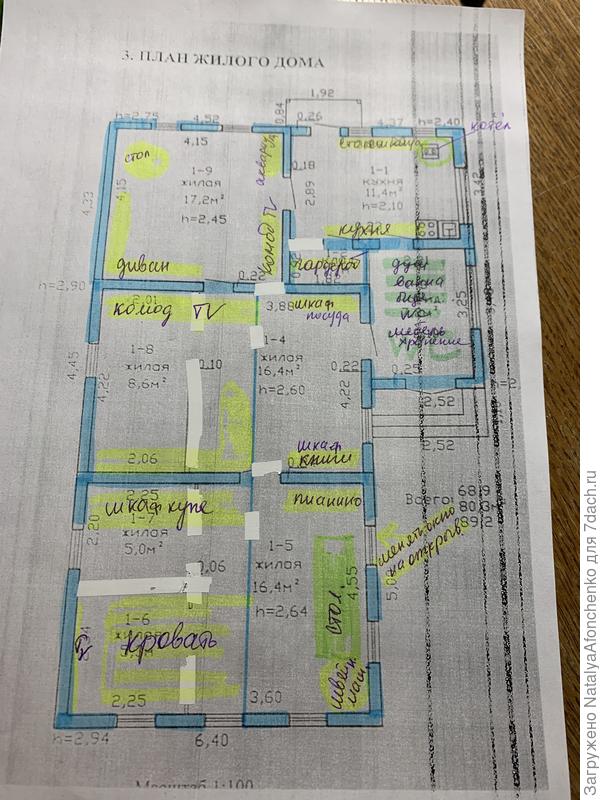 3. ПЛАН ЖИЛОГО ДОМА
1,92
h=2,75
4,52
0,84
0,26
4,37
h=2,40
котёл
4,15
столешница
стол
1-9
жилая
17,2м²
h=2,45
аквариум
0,18
1-1
кухня
11,4м²
h=2,10
3,42
4,33
4,15
2,89
комод TV
кухня
диван
0,22
гардероб
1,82
душ
ванна
h=2,90
2,01
комод TV
3,88
шкаф
посуда
мебель
хранение
WC
3,25
1-8
жилая
8,6м²
0,10
1-4
жилая
16,4м²
h=2,60
0,22
4,45
4,22
4,22
0,25
2,52
2,52
2,06
шкаф
книги
2,25
шкаф купе
пианино
Всего:
68,9
80,3
89,2
1-7
жилая
5,0м²
2,20
0,06
1-5
жилая
16,4м²
h=2,64
4,55
стол
менять окно
на открыв.
1-6
кровать
TV
швейн
маш.
2,25
3,60
h=2,94
6,40
Масштаб 1:100
Загружено NatalyaAfonchenko для 7dach.ru